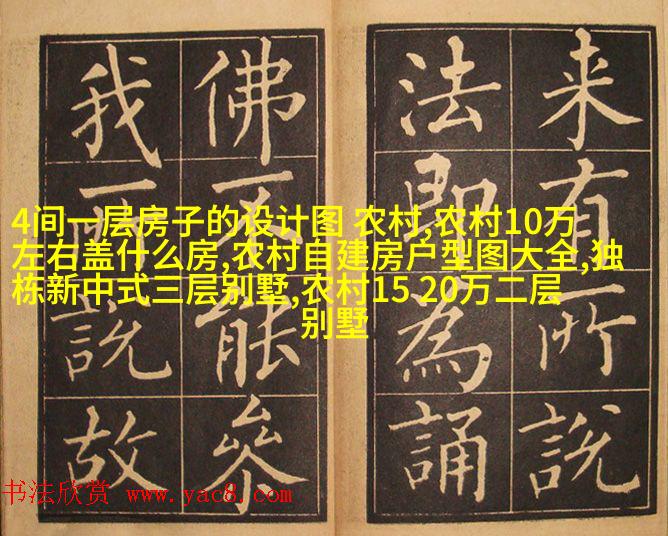 来有所說
法即為誦
佛不能參
我說故
4间一层房子的设计图 农村,农村10万
左右盖什么房,农村自建房户型图大全,独
栋新中式三层别墅,农村15 20万二层
别墅
书法欣赏 www.yac8.com